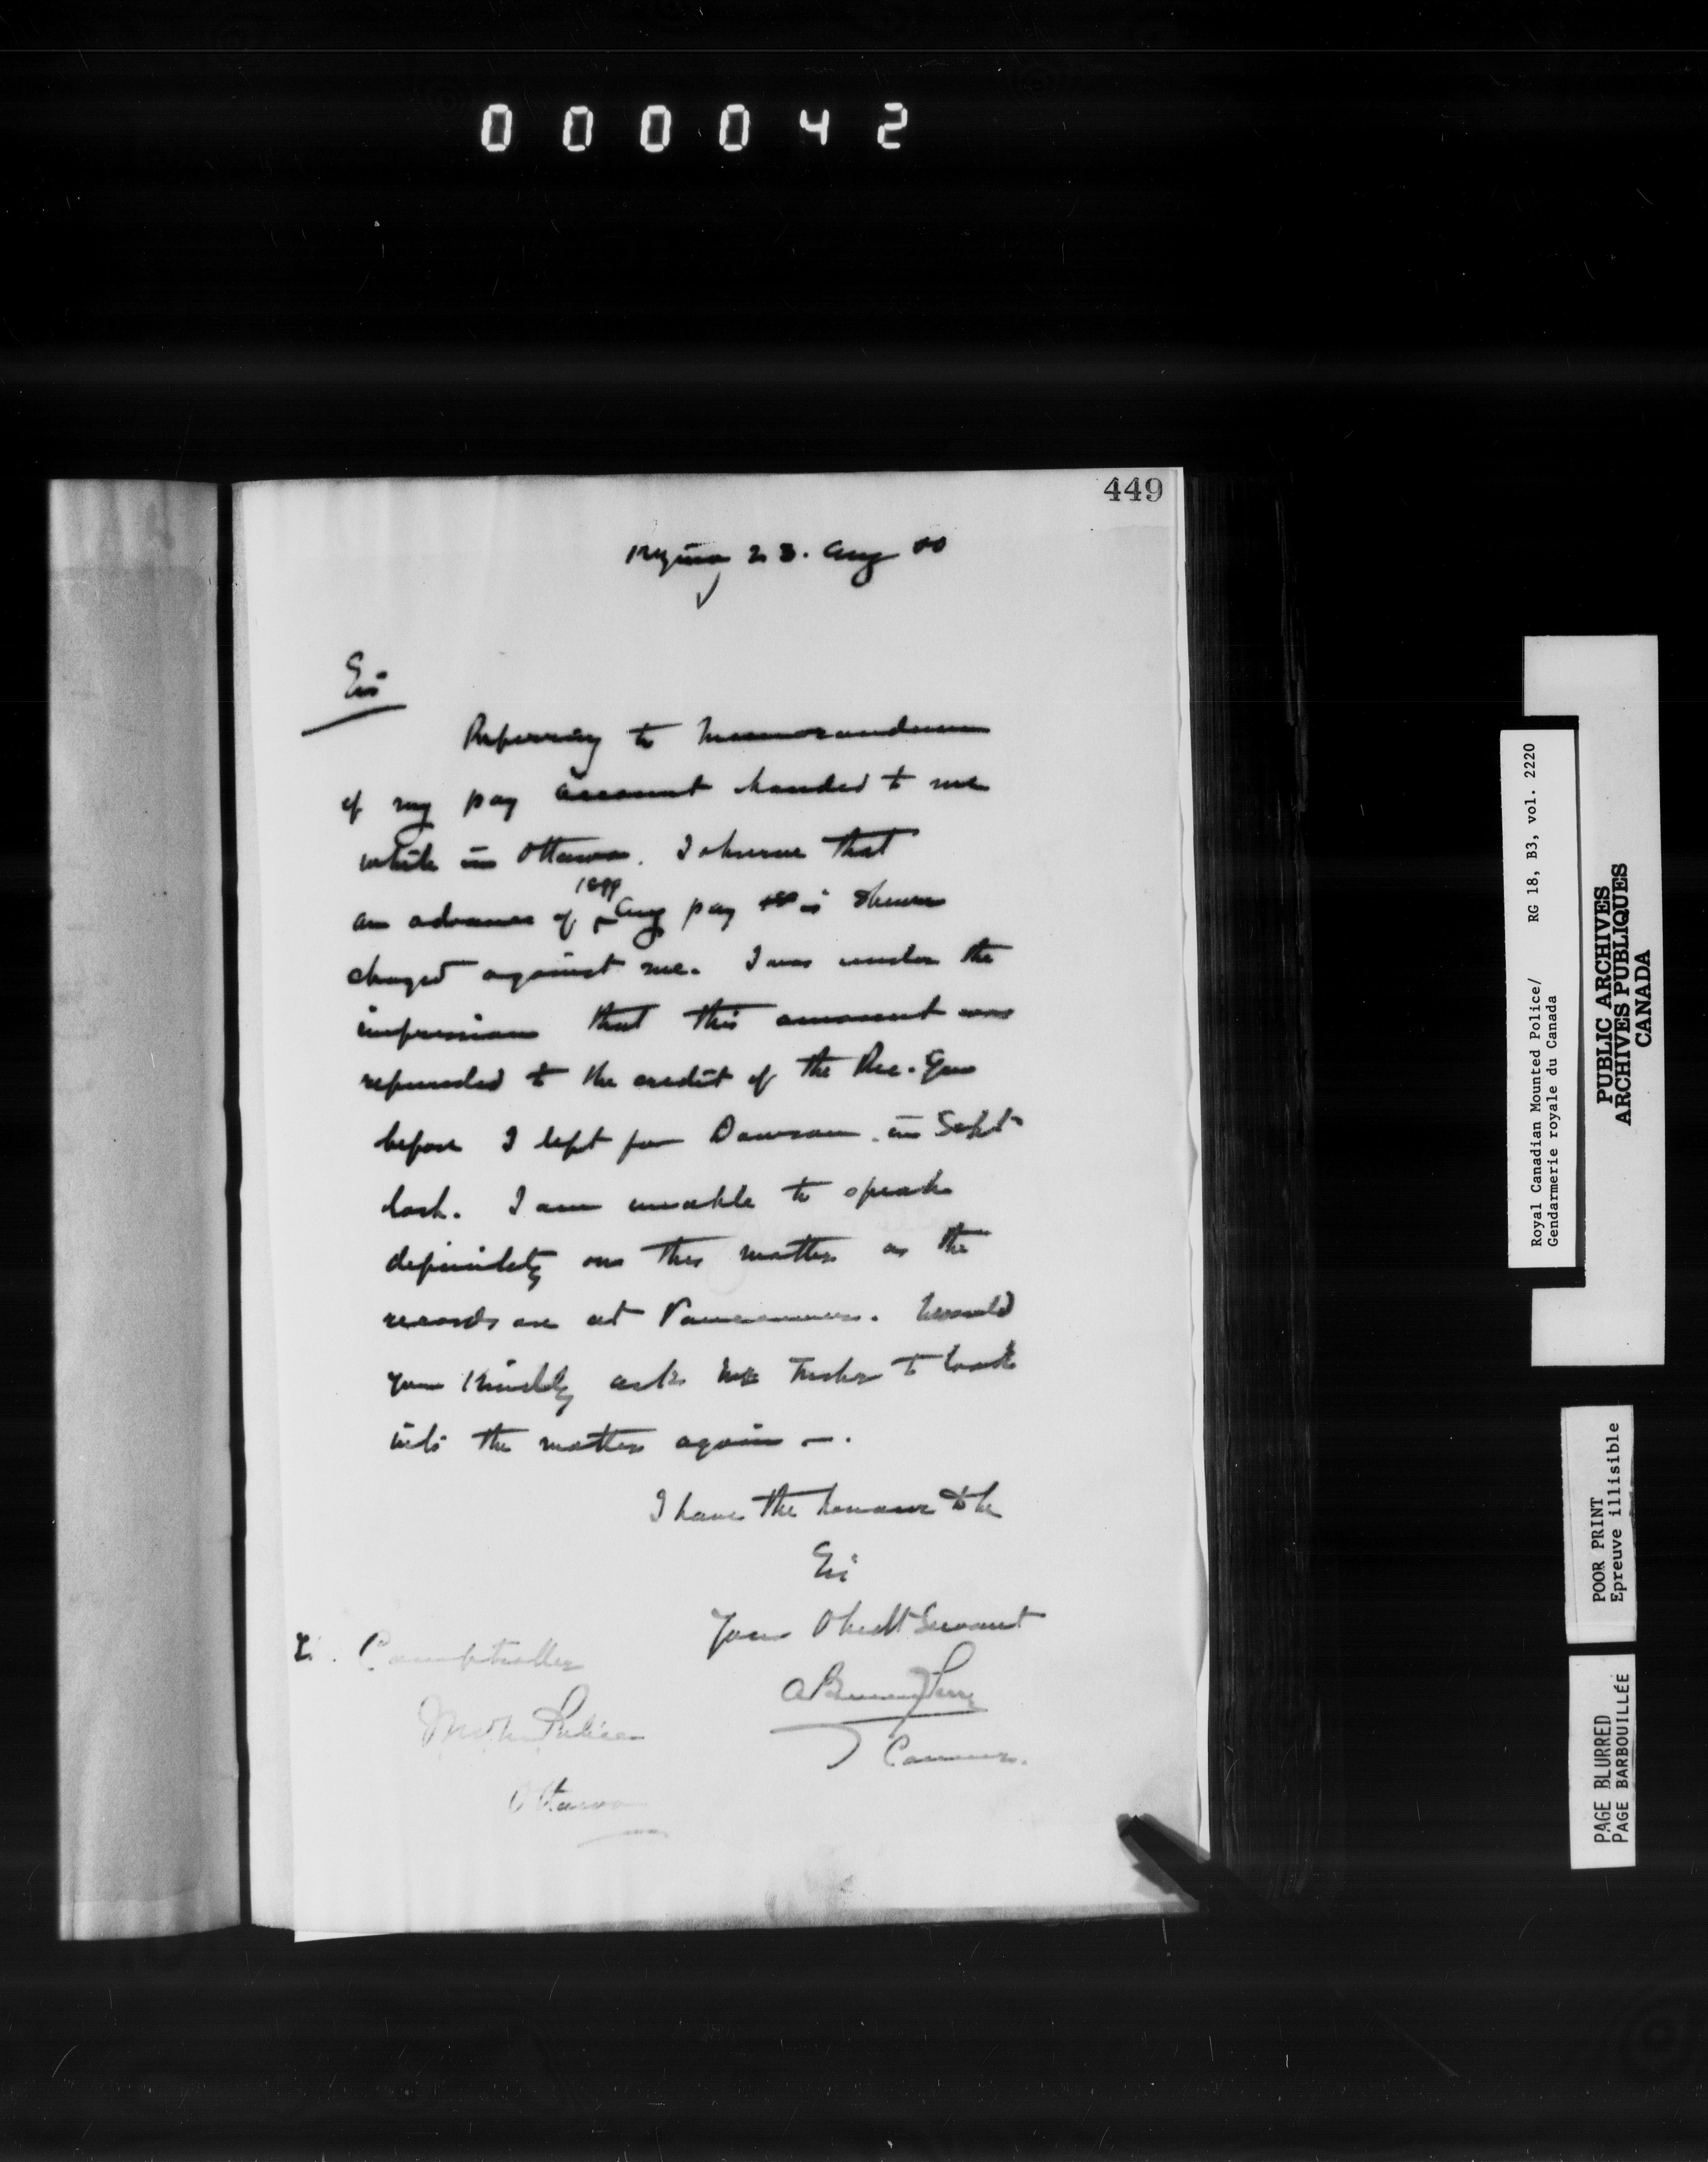 000042
449
Regina 23. Aug 00
Sir
Referring to Memorandum
of my pay account handed to me
while in Ottawa. I observe that
an advance of 1899 Aug pay is shewn
charged against me. I was under the
impression that this amount was
refunded to the credit of the Rec. Gen
before I left for Dawson in Sept
last. I am unable to speak
definitely on this matter as the
records are at Vancouver. Would
you kindly ask Mr to look
into the matter again.
I have the honour to be
Sir
Your Obedt Servant
A Bowen Perry
Commr.
Comptroller
Police
Ottawa
Royal Canadian Mounted Police/ RG 18, B3, vol. 2220
Gendarmerie royale du Canada
PUBLIC ARCHIVES
ARCHIVES PUBLIQUES
CANADA
POOR PRINT
Epreuve illisible
PAGE BLURRED
PAGE BARBOUILLÉE